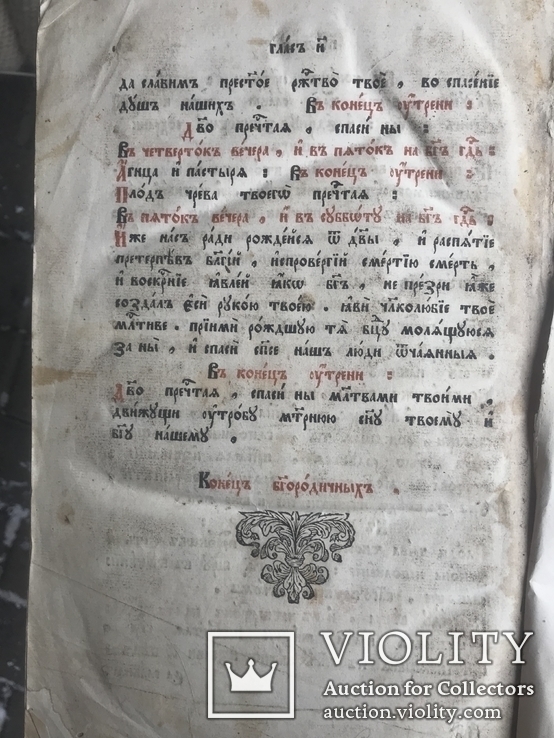 гла́съ и҃
да сла́вимъ прест҃о́е рж҃тво̀ твоѐ , во спасе́нїе
дꙋ́шъ на́шихъ . Въ коне́цъ оу҆́трени :
Дв҃о преч҃тая , спасѝ ны :
Въ четверто́къ ве́чера , и҆ въ пято́къ на бг҃ъ гд҃ь :
А҆́гница и҆ па́стыря : Въ коне́цъ оу҆́трени :
Пло́дъ чре́ва твоегѡ̀ преч҃тая :
Въ пято́къ ве́чера , и҆ въ сꙋббѡ́тꙋ на бг҃ъ гд҃ь :
И҆́же на́съ ра́ди рожде́йся ѿ дв҃ы , и҆ распѧ́тїе
претерпѣ́въ бл҃гі́й , и҆спрове́ргїй сме́ртїю сме́рть ,
и҆ воскр҃нїе ꙗ҆вле́й ꙗ҆́кѡ бг҃ъ , не пре́зри ꙗ҆̀же
созда́лъ є҆сѝ рꙋко́ю твое́ю . ꙗ҆вѝ чл҃колю́бїе твоѐ
млⷭ҇тиве . прїимѝ ро́ждшꙋю тѧ̀ бц҃ꙋ моля́щꙋюся
за ны̀ , и҆ спасѝ сп҃се на́шъ лю́ди ѿча́янныя .
Въ коне́цъ оу҆́трени :
Дв҃о преч҃тая , спасѝ ны мл҃твами твои́ми ,
дви́жꙋщи оу҆тро́бꙋ мт҃рнюю сн҃ꙋ твоемꙋ̀ и҆
бг҃ꙋ на́шемꙋ .
Коне́цъ бг҃оро́дичныхъ .
VIOLITY
Auction for Collectors
auction.violity.com